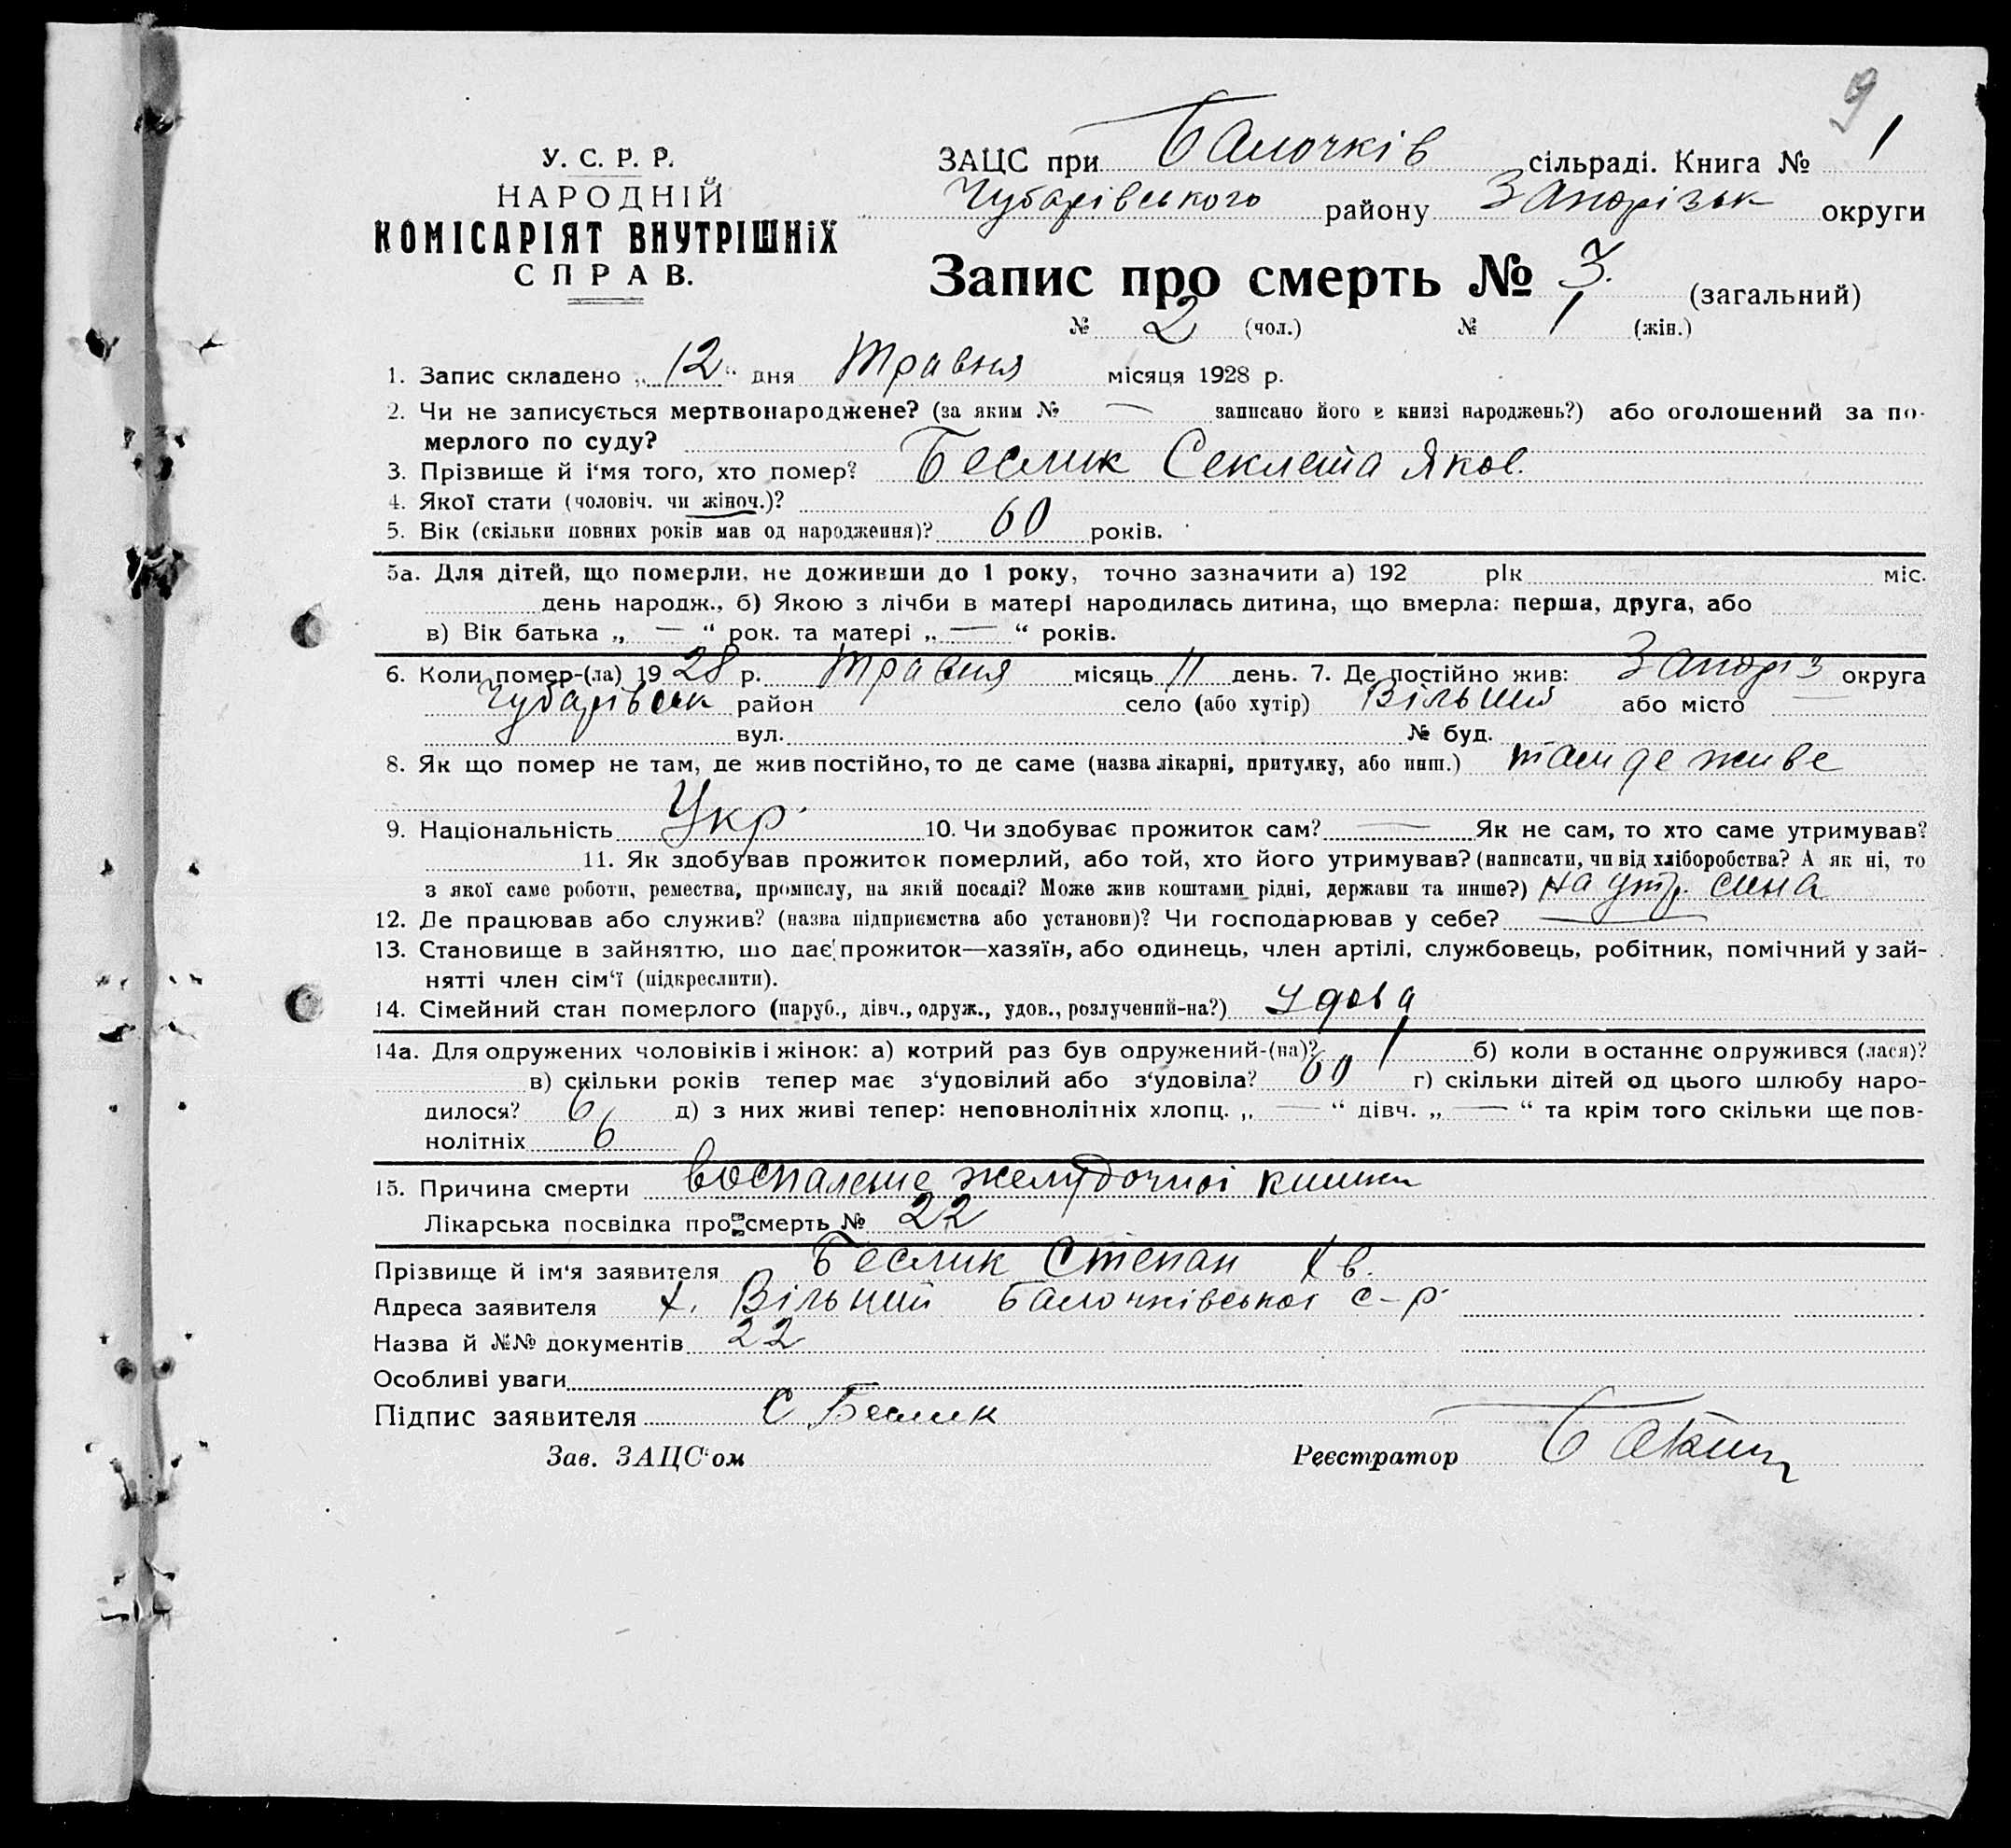 9
У. С. Р. Р.
НАРОДНІЙ
КОМІСАРІЯТ ВНУТРІШНіХ
СПРАВ.
ЗАЦС при Балочків сільраді. Книга № 1
Чубарівського району Запорізьк округи
Запис про смерть № 3. (загальний)
№ 2 (чол.) № 1 (жін.)
1. Запис складено „ 12 “ дня Травня місяця 1928 р.
2. Чи не записується мертвонароджене? (за яким № — записано його в книзі народжень?) або оголошений за по-
мерлого по суду?
3. Прізвище й і‘мя того, хто помер? Беслик Секлета Яков.
4. Якої стати (чоловіч. чи жіноч.)?
5. Вік (скільки повних років мав од народження)? 60 років.
5а. Для дітей, що померли, не доживши до 1 року, точно зазначити а) 192 рік міс.
день народж., б) Якою з лічби в матері народилась дитина, що вмерла: перша, друга, або
в) Вік батька „ — “ рок. та матері „ — “ років.
6. Коли помер-(ла) 1928 р. Травня місяць 11 день. 7. Де постійно жив: Запоріз округа
Чубарівськ район село (або хутір) Вільний або місто —
вул. № буд.
8. Як що помер не там, де жив постійно, то де саме (назва лікарні, притулку, або инш.) там де живе
9. Національність Укр. 10. Чи здобуває прожиток сам? — Як не сам, то хто саме утримував?
11. Як здобував прожиток померлий, або той, хто його утримував? (написати, чи від хліборобства? А як ні, то
з якої саме роботи, ремества, промислу, на якій посаді? Може жив коштами рідні, держави та инше?) на утр. сина
12. Де працював або служив? (назва підприємства або установи)? Чи господарював у себе? —
13. Становище в зайняттю, що дає прожиток—хазяїн, або одинець, член артілі, службовець, робітник, помічний у зай-
нятті член сім‘ї (підкреслити).
14. Сімейний стан померлого (паруб., дівч., одруж., удов., розлучений-на?) удова
14а. Для одружених чоловіків і жінок: а) котрий раз був одружений-(на)? 1 б) коли в останнє одружився (лася)?
в) скільки років тепер має з‘удовілий або з‘удовіла? 60 г) скільки дітей од цього шлюбу наро-
дилося? 6 д) з них живі тепер: неповнолітніх хлопц. „ — “ дівч. „ — “ та крім того скільки ще пов-
нолітніх 6
15. Причина смерти воспаление желудочної кишки
Лікарська посвідка про смерть № 22
Прізвище й ім‘я заявителя Беслик Степан
Адреса заявителя х. Вільний Балочківської с-р
Назва й №№ документів 22
Особливі уваги
Підпис заявителя С Беслик
Зав. ЗАЦС‘ом Реєстратор